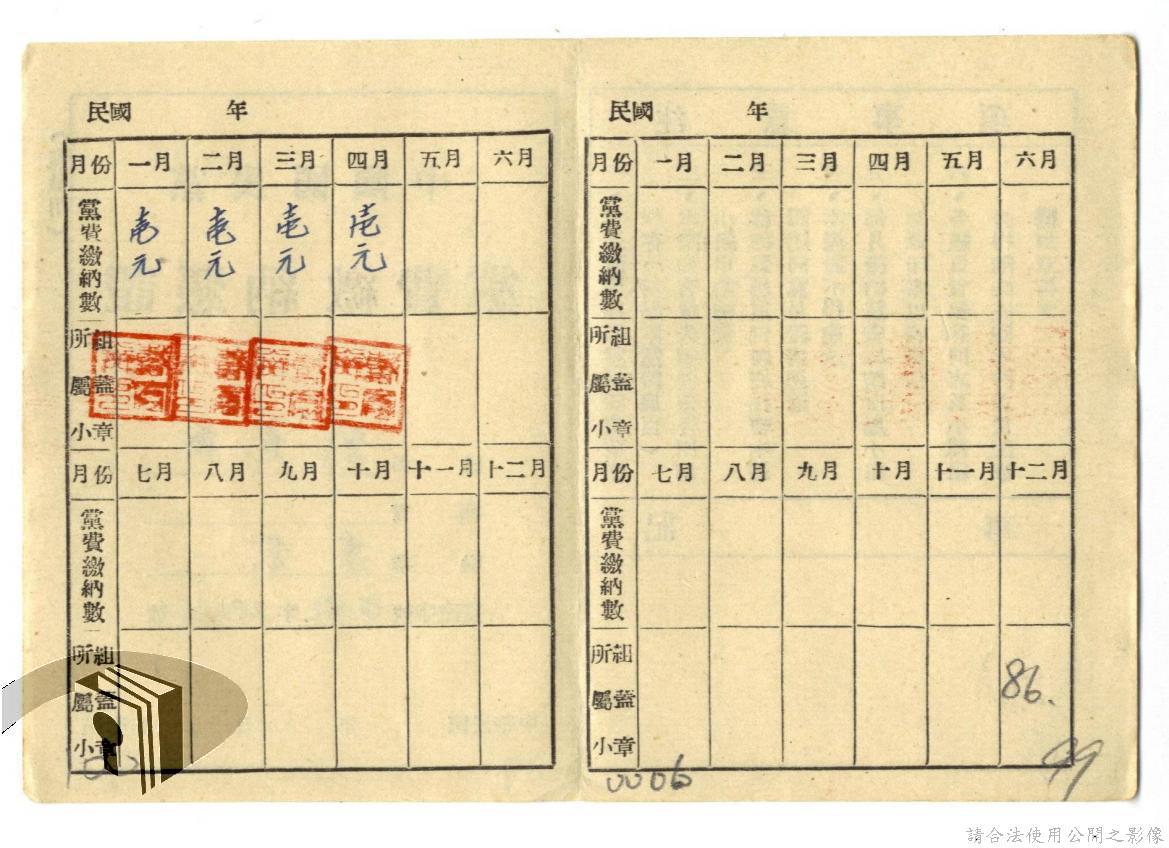 民國 年
月份 一月 二月 三月 四月 五月 六月
黨費繳納數 壱元 壱元 壱元 壱元
所屬小組蓋章
月份 七月 八月 九月 十月 十一月 十二月
黨費繳納數
所屬小組蓋章
民國 年
月份 一月 二月 三月 四月 五月 六月
黨費繳納數
所屬小組蓋章
月份 七月 八月 九月 十月 十一月 十二月
黨費繳納數
所屬小組蓋章
86.
0006
99
請合法使用公開之影像